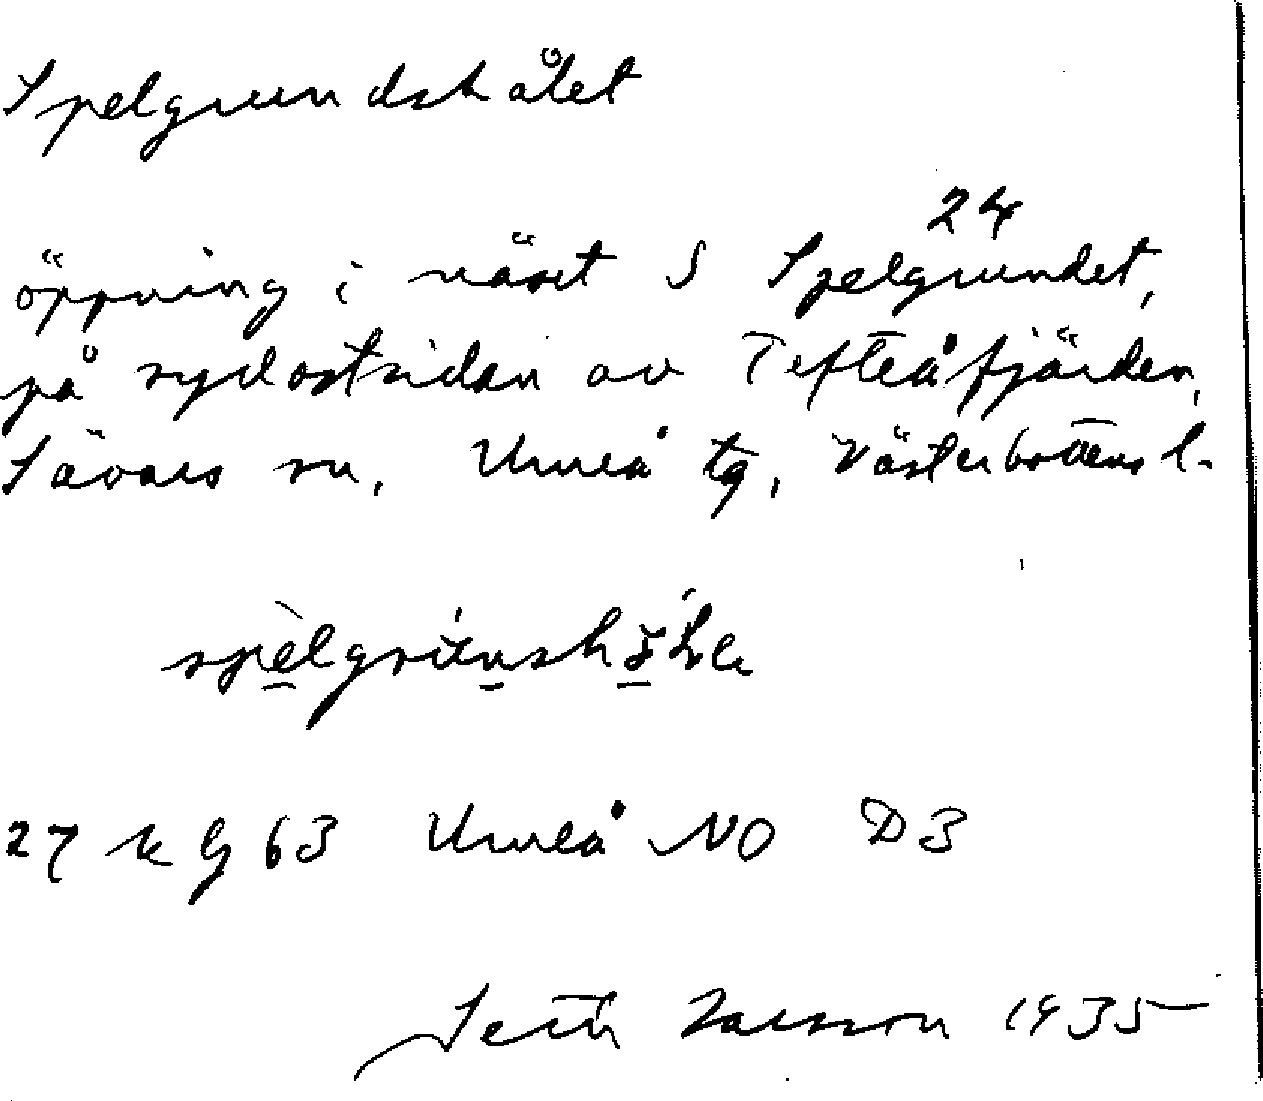 Spelgrundshålet
24
öppning i näset S Spelgrundet,
på sydostsidan av Tefteåfjärden,
Sävars sn, Umeå tg, Västerbottens l.
27 k G 63 Umeå NO D3
Seth Larsson 1935